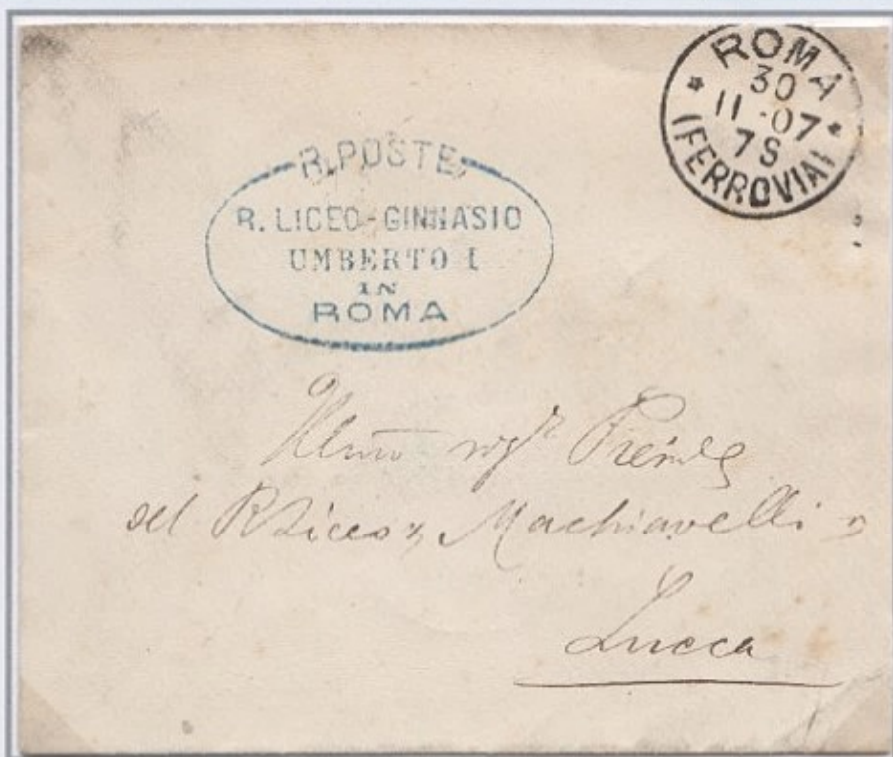 ROMA
30
11-07
7S
(FERROVIA)
R. POSTE
R. LICEO-GINNASIO
UMBERTO I
IN
ROMA
Illmo sigr Preside
del R Liceo "Machiavelli"
Lucca